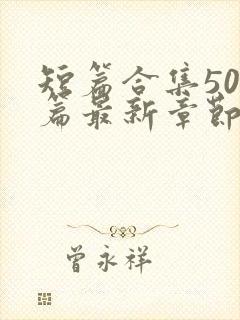 短篇合集50
篇最新章节
曾永祥